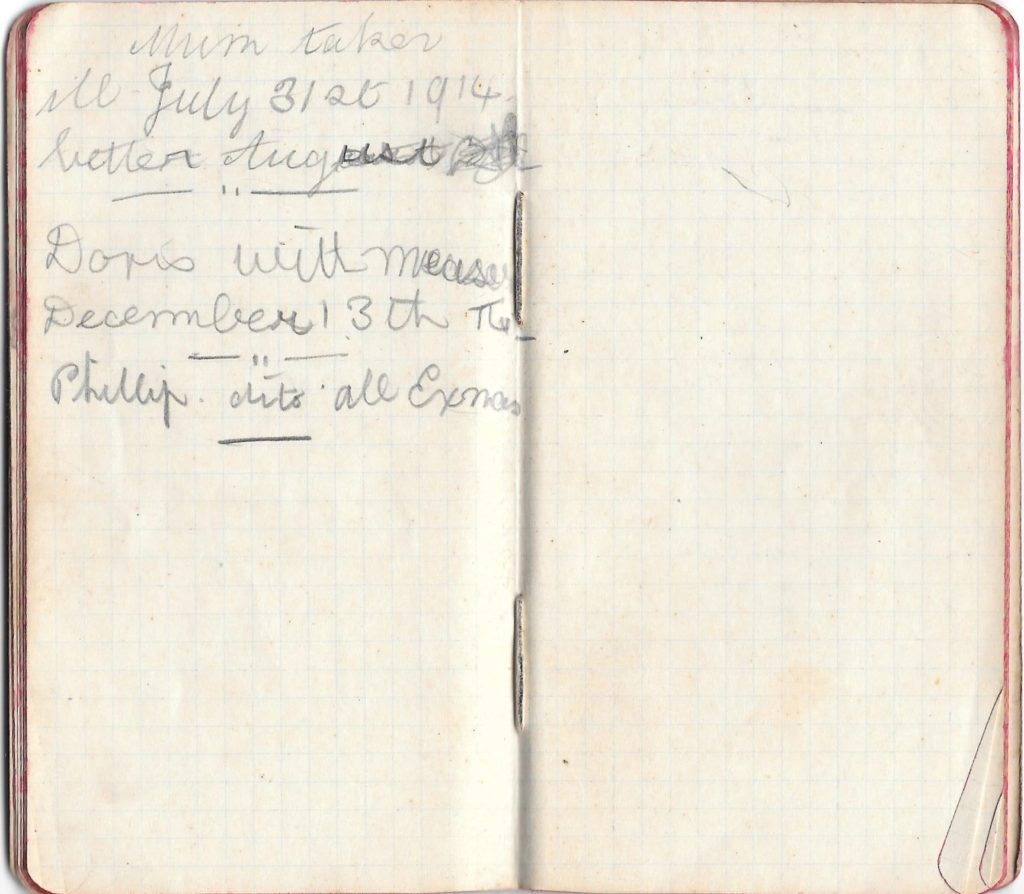 Mum taken
ill July 31st 1914.
better August
Doris with measles
December 13th The
Phillip. dito all Exmas